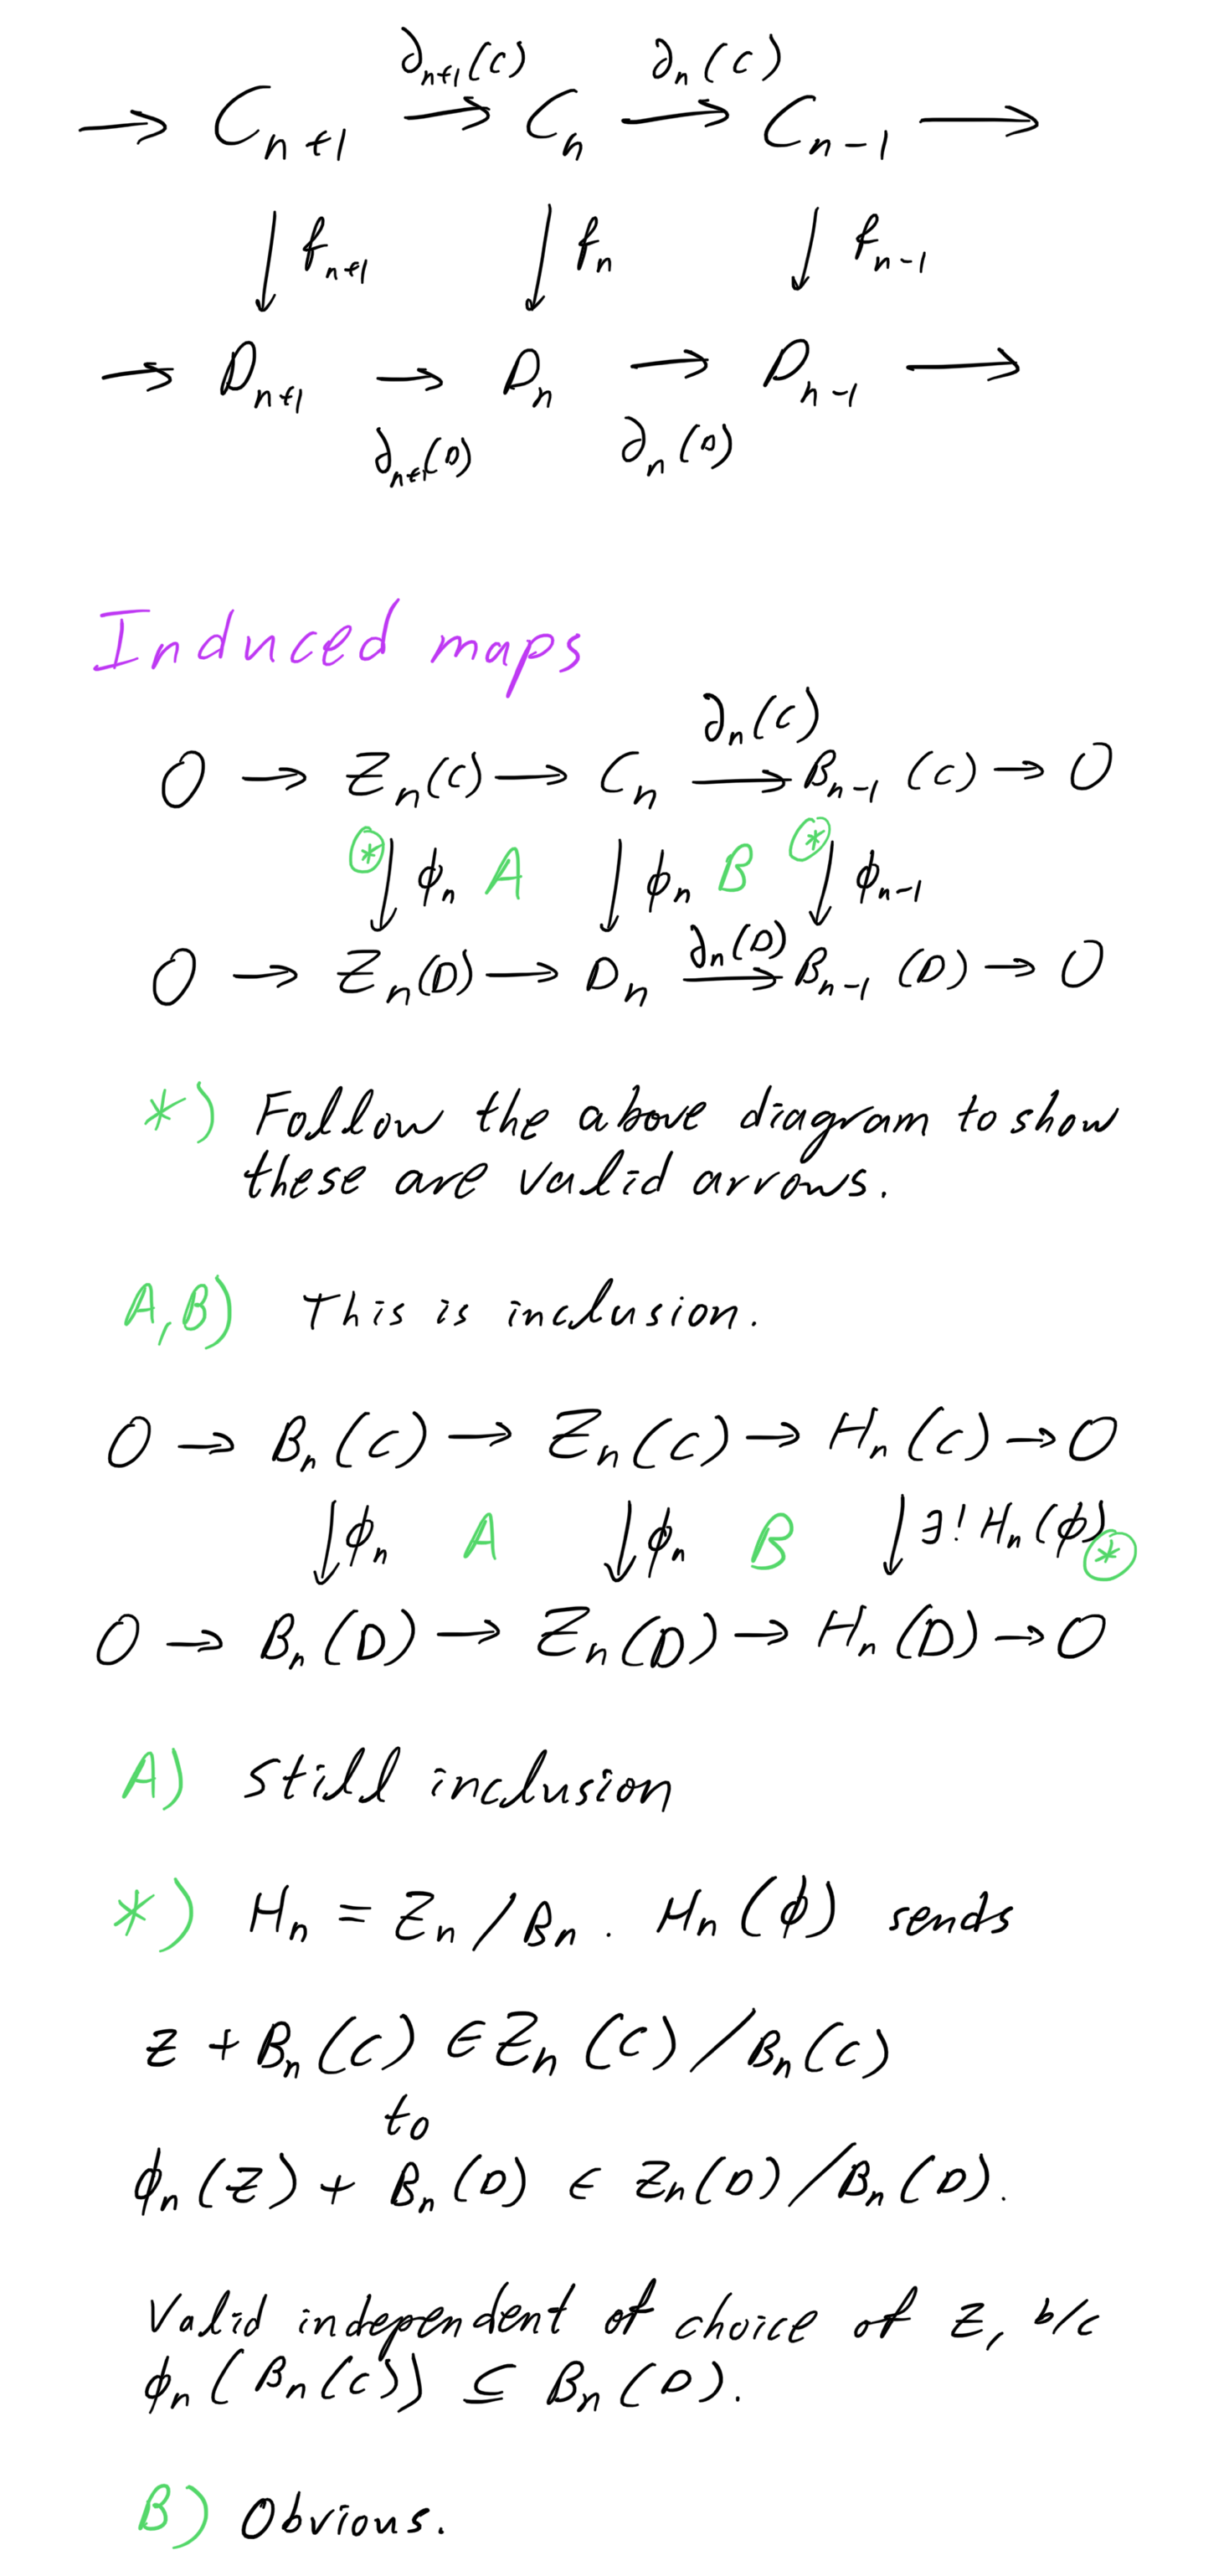 ∂ₙ₊₁(C) ∂ₙ(C)
→ Cₙ₊₁ → Cₙ → Cₙ₋₁ →
↓ fₙ₊₁ ↓ fₙ ↓ fₙ₋₁
→ Dₙ₊₁ → Dₙ → Dₙ₋₁ →
∂ₙ₊₁(D) ∂ₙ(D)
Induced maps
∂ₙ(C)
0 → Zₙ(C) → Cₙ → Bₙ₋₁(C) → 0
* ↓ ϕₙ A ↓ ϕₙ B * ↓ ϕₙ₋₁
∂ₙ(D)
0 → Zₙ(D) → Dₙ → Bₙ₋₁(D) → 0
*) Follow the above diagram to show
these are valid arrows.
A,B) This is inclusion.
0 → Bₙ(C) → Zₙ(C) → Hₙ(C) → 0
↓ ϕₙ A ↓ ϕₙ B ↓ ∃! Hₙ(ϕ) *
0 → Bₙ(D) → Zₙ(D) → Hₙ(D) → 0
A) Still inclusion
*) Hₙ = Zₙ/Bₙ. Hₙ(ϕ) sends
z + Bₙ(C) ∈ Zₙ(C)/Bₙ(C)
to
ϕₙ(z) + Bₙ(D) ∈ Zₙ(D)/Bₙ(D).
Valid independent of choice of z, b/c
ϕₙ(Bₙ(C)) ⊆ Bₙ(D).
B) Obvious.